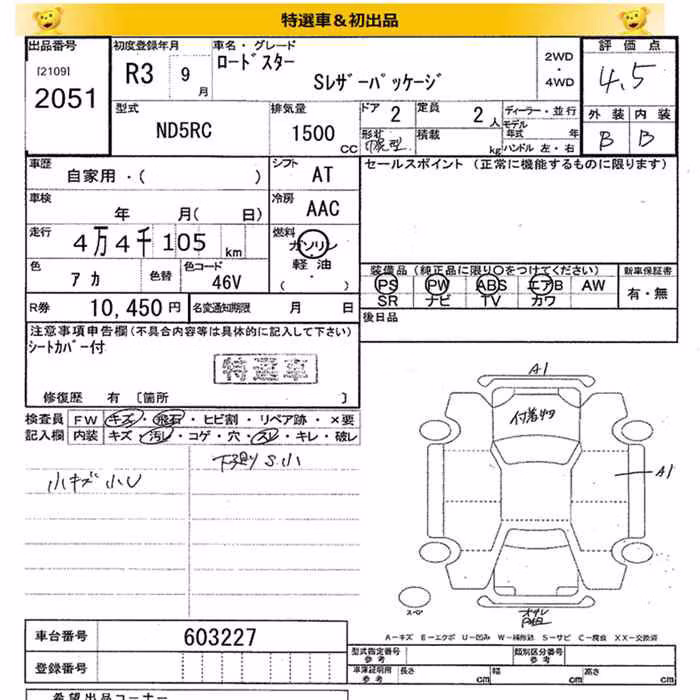 特選車&初出品
出品番号
[2109]
2051
初度登録年月
R3 9月
車名・グレード
ロードスター
Sレザーパッケージ
2WD
・
4WD
評価点
4.5
外装 内装
B B
型式
ND5RC
排気量
1500 CC
ドア 2
定員 2人
形状
積載 kg
ディーラー・並行
モデル年式 年
ハンドル 左・右
車歴
自家用・( )
シフト AT
セールスポイント (正常に機能するものに限ります)
車検
年 月( 日)
冷房 AAC
走行
4万4千105 km
燃料
ガソリン
軽油
・( )
色
アカ
色替
色コード
46V
装備品 (純正品に限り〇をつけてください)
PS PW ABS エアB AW
SR ナビ TV カワ
新車保証書
有・無
R券 10,450円
名変通知期限 月 日
後日品
注意事項申告欄(不具合内容等は具体的に記入して下さい)
シートカバー付
特選車
修復歴 有 [箇所 ]
検査員記入欄
FW キズ・飛石・ヒビ割・リペア跡・×要
内装 キズ・汚れ・コゲ・穴・スレ・キレ・破レ
小キズ小U
下廻りS小
A1
A1
スペア
A-キズ E-エクボ U-凹み W-補修跡 S-サビ C-腐食 XX-交換済
車台番号 603227
登録番号
型式指定番号
参考
類別区分番号
参考
車庫証明用
参考
長さ cm
幅 cm
高さ cm
希望出品コーナー